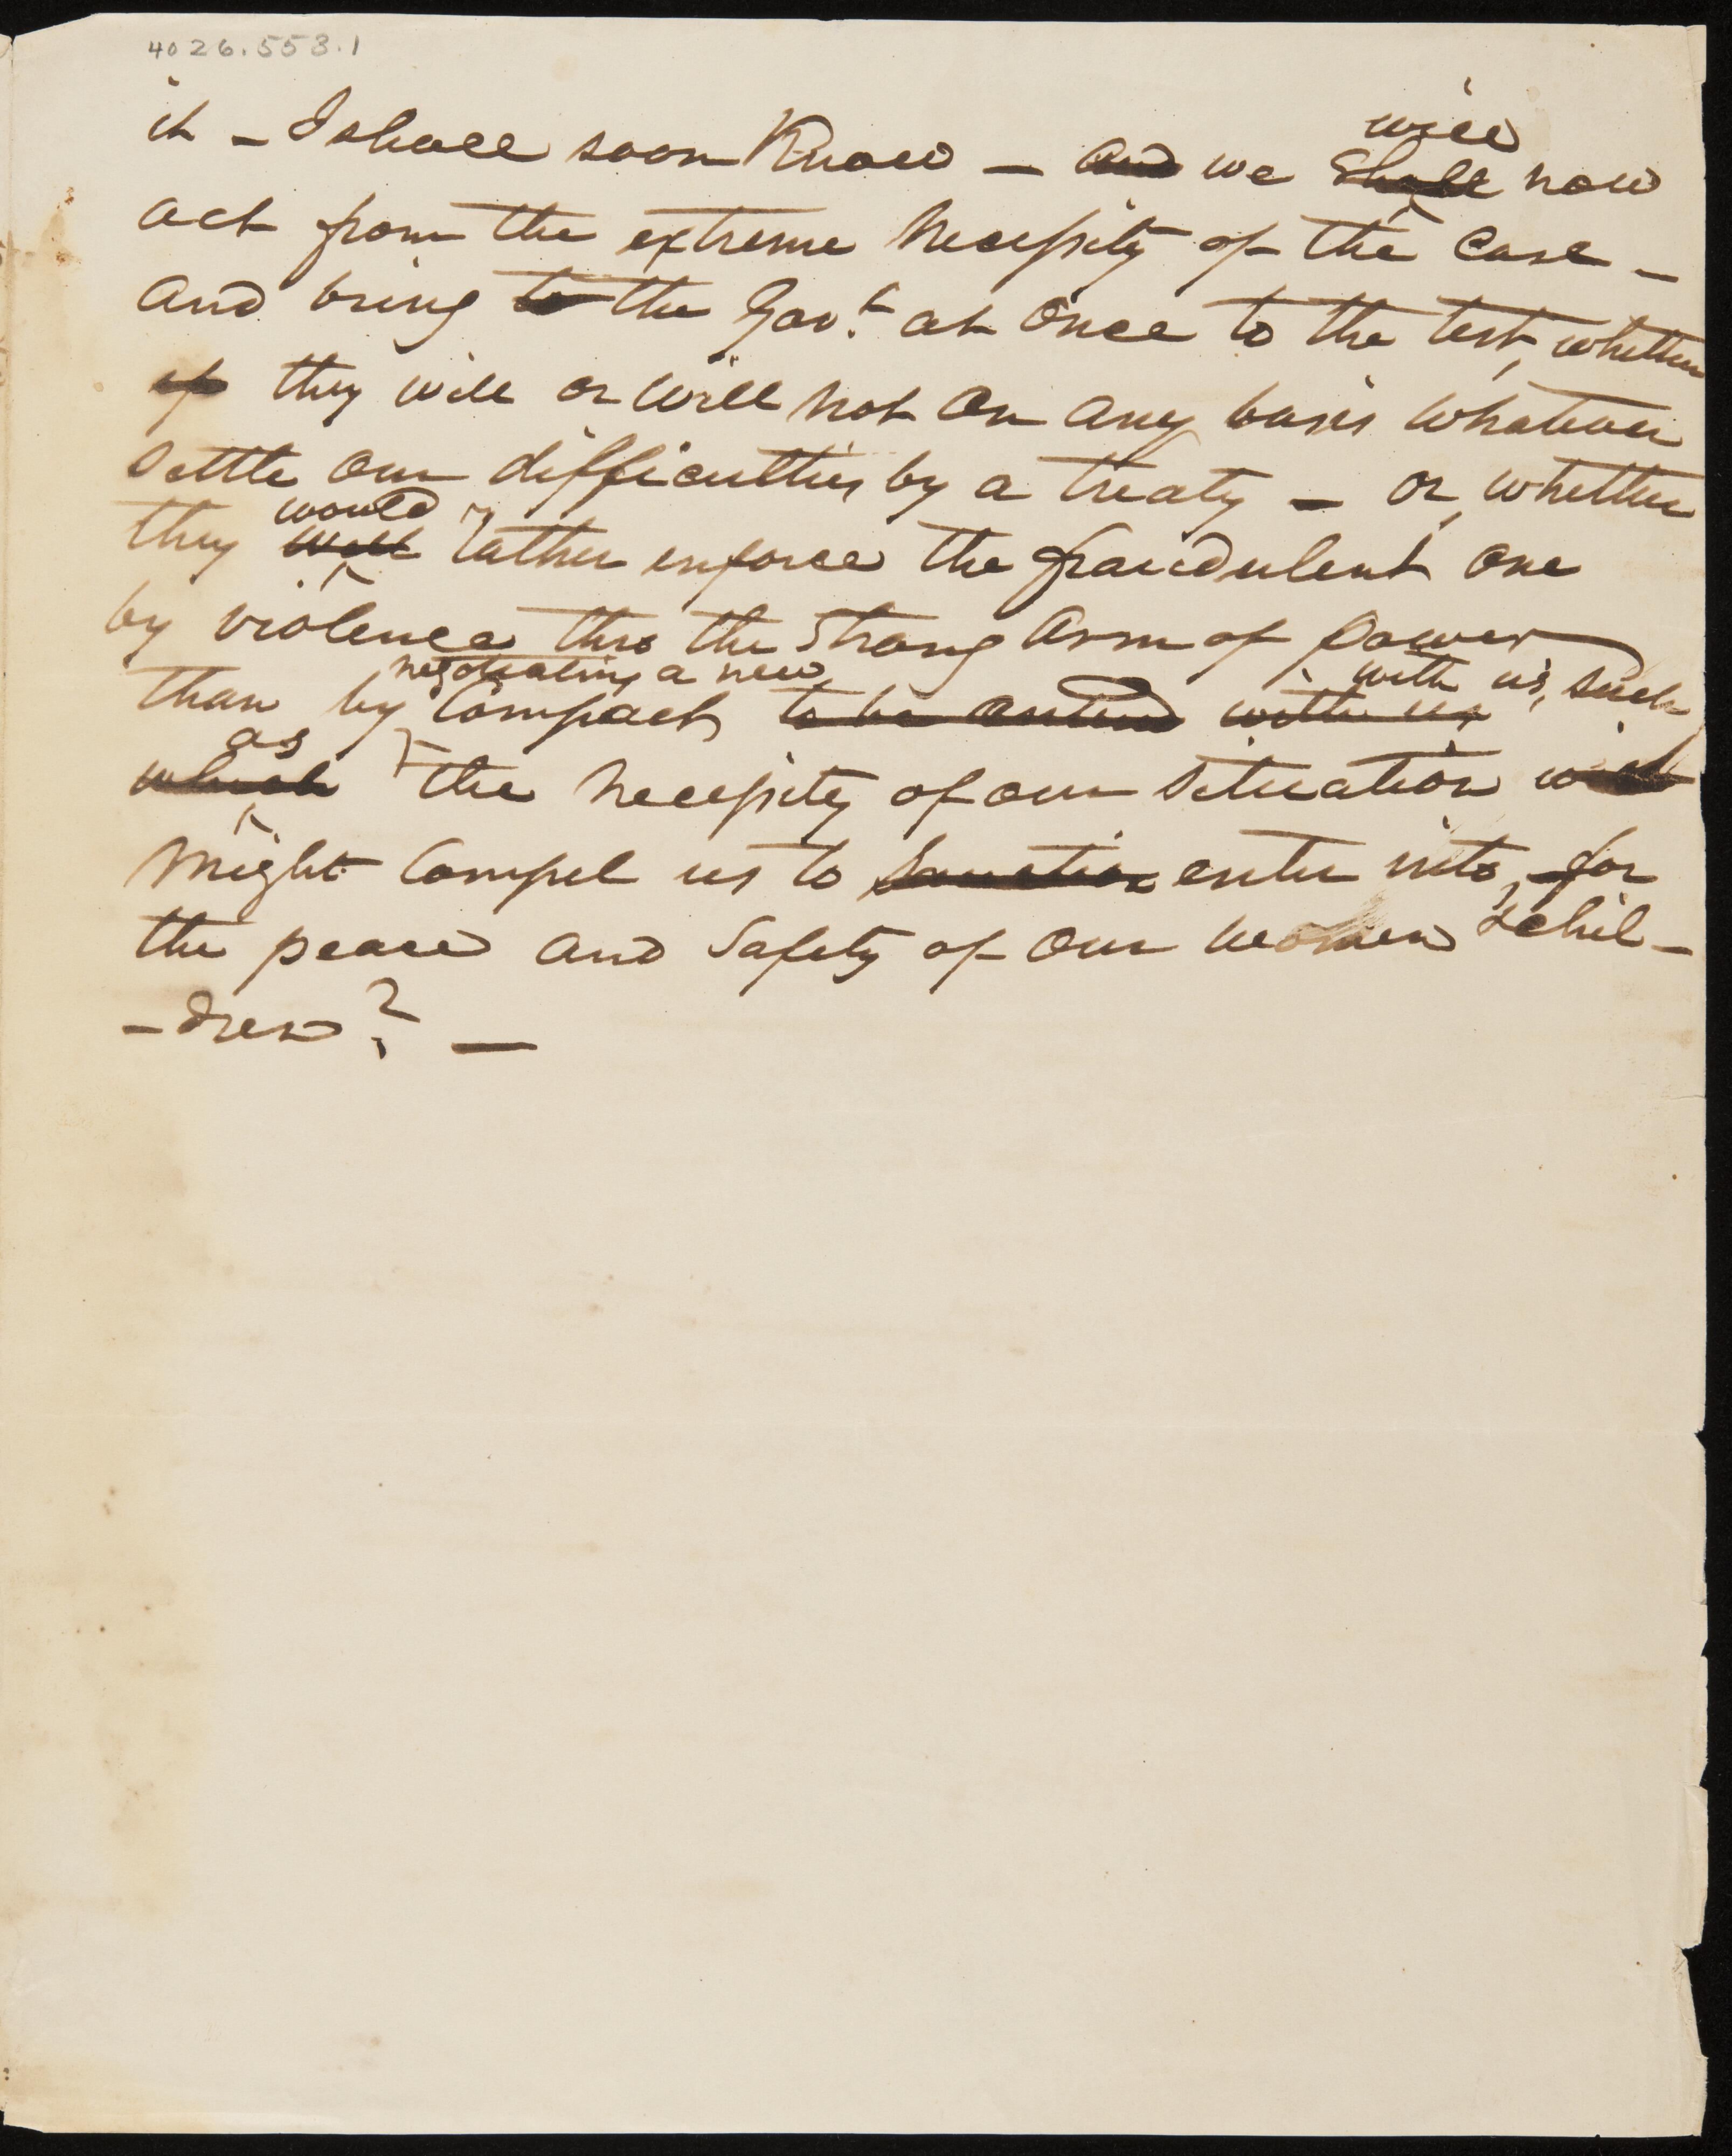 4026.553.1
it – I shall soon Know – and we shall will now
act from the extreme necessity of the case –
and bring to the Gov.t at once to the test, whether
if they will or will not on any basis whatever
settle our difficulties by a treaty – or, whether
they will would rather enforce the fraudulent one
by violence thro the strong arm of power
than by negotiating a new Compact, to be entered with us with us, such
which as the necessity of our situation will
might compel us to sanction enter into, for
the peace and safety of our women & chil-
-dren? —